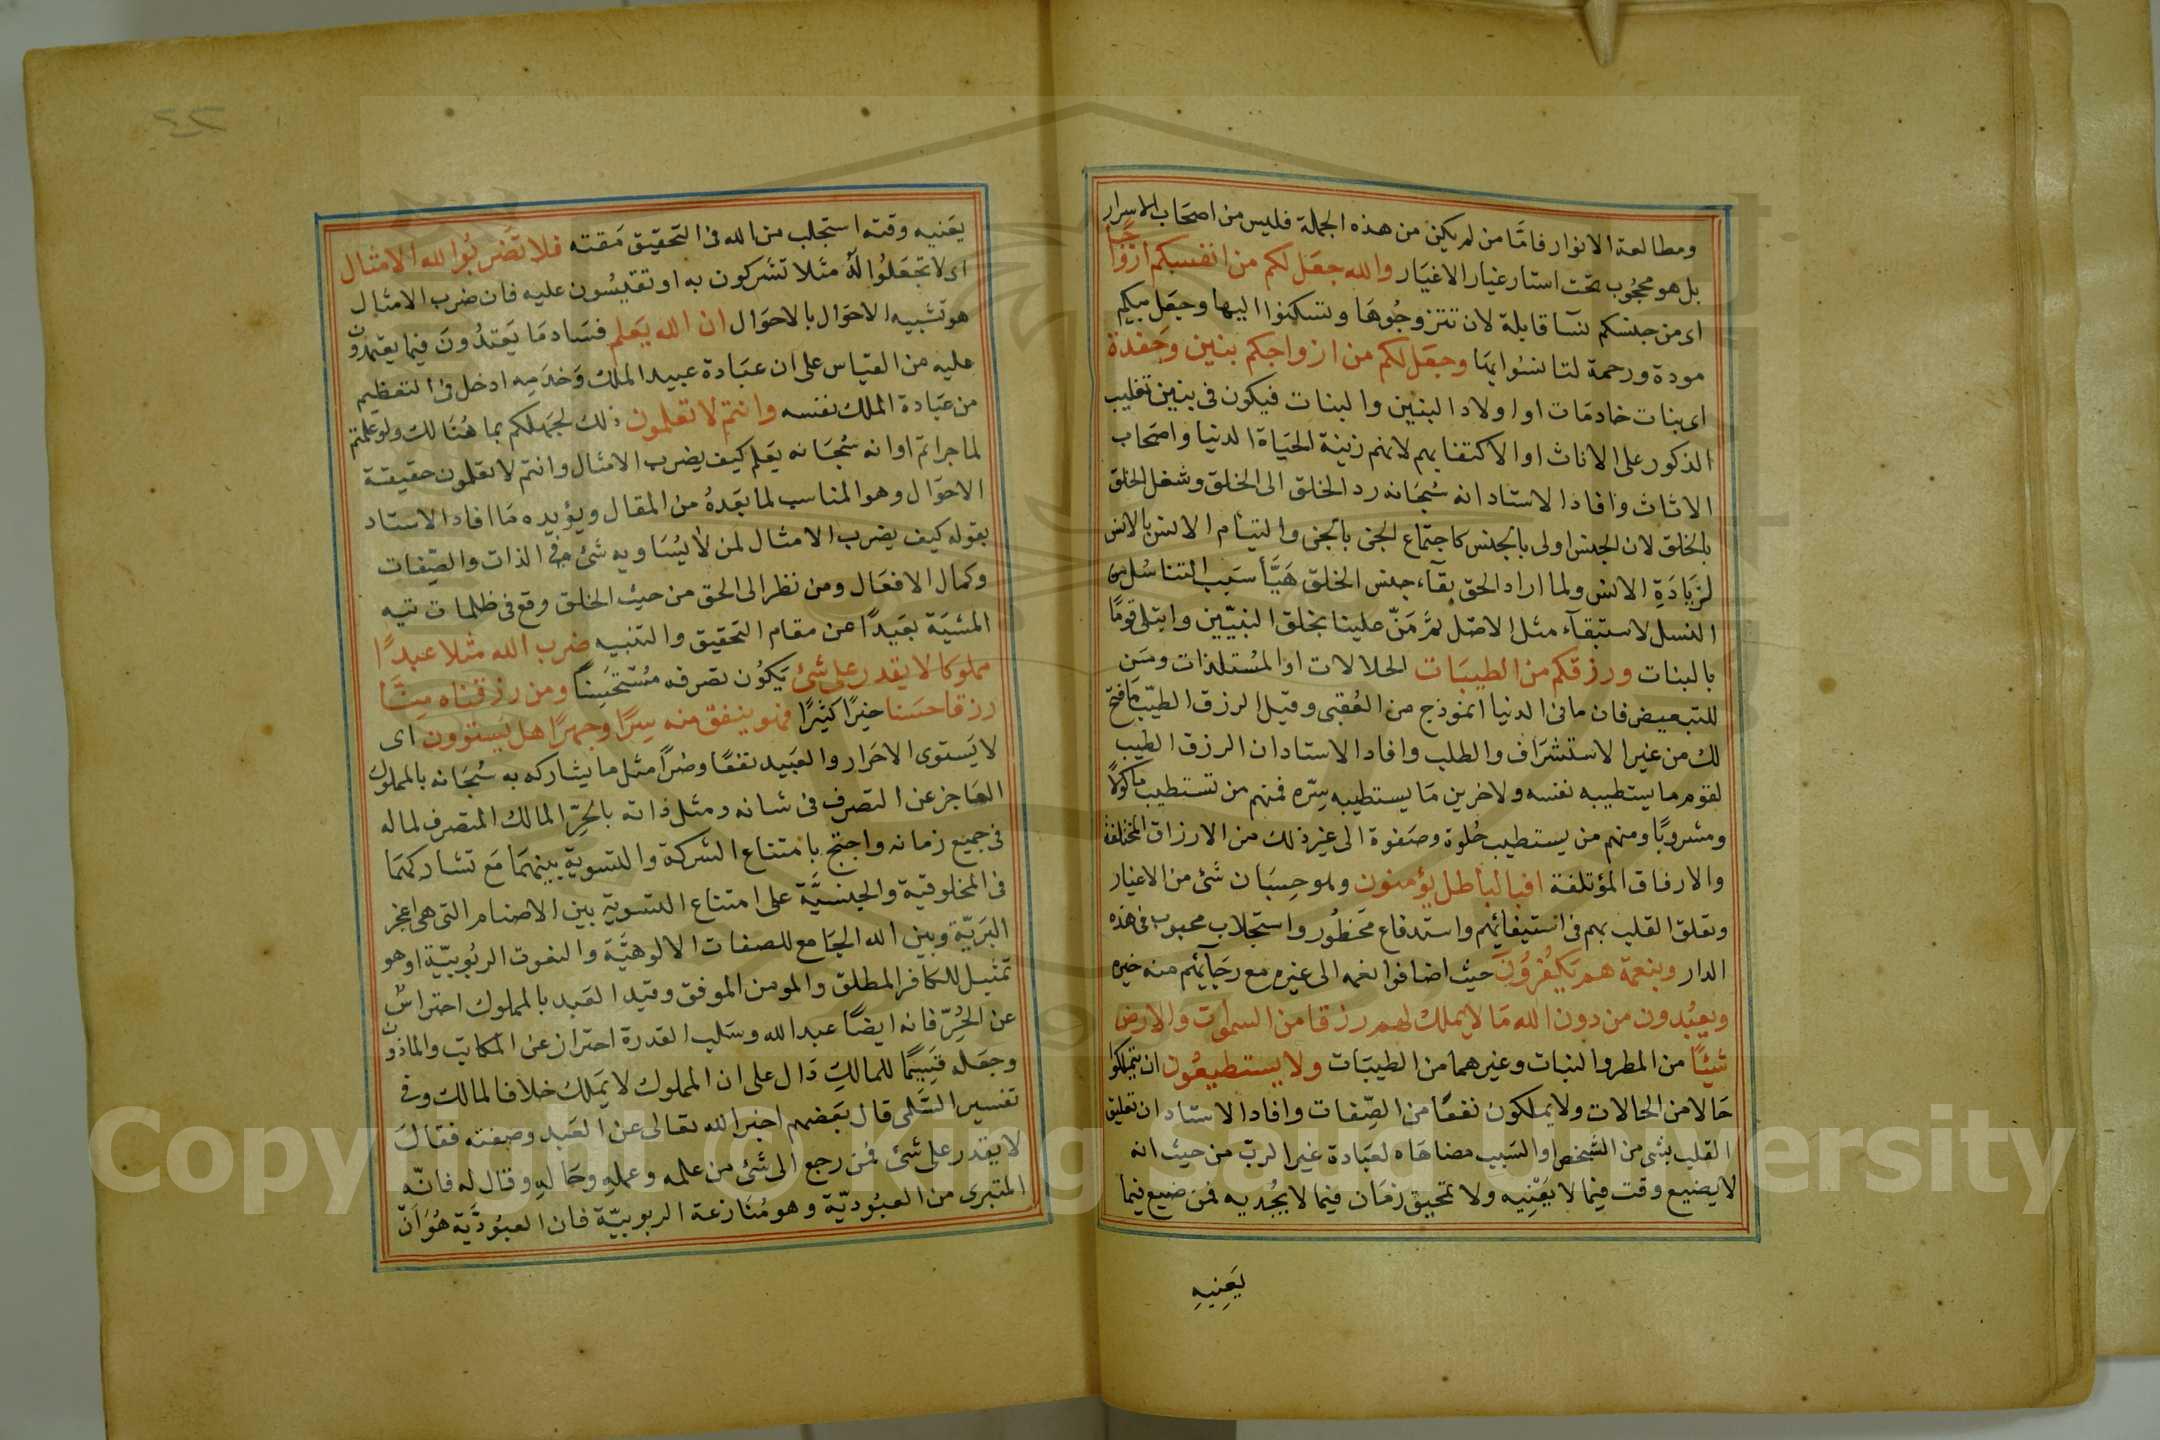 ومطالعة الانوار فامّا من لم يكن من هذه الجملة فليس من اصحاب الاسرار
بل هو محجوب تحت استار غبار الاغيار والله جعل لكم من انفسكم ازواجا
اى من جنسكم نسآ قابلة لان تتزوجوها وتسكنوا اليها وجعل بينكم
مودة ورحمة لتانسوا بها وجعل لكم من ازواجكم بنين وحفدة
اى بنات خادمات او اولاد البنين والبنات فيكون فى بنين تغليب
الذكور على الاناث او الاكتفا بهم لانهم زينة الحياة الدنيا واصحاب
الاثاث وافاد الاستاد انه سبحانه رد الخلق الى الخلق وشغل الخلق
بالخلق لان الجنس اولى بالجنس كاجتماع الجن بالجن والتيام الانس بالانس
لزيادة الانس ولما اراد الحق بقآء جنس الخلق هيّأ سبب التناسل من
النسل لاستبقآء مثل الاصل ثم منّ علينا بخلق النبيّين وابتلى قومًا
بالبنات ورزقكم من الطيبات الحلالات او المستلذات ومن
للتبعيض فان ما فى الدنيا انموذج من العقبى وقيل الرزق الطيّب ما فتح
لك من غير الاستشراف والطلب وافاد الاستاد ان الرزق الطيب
لقوم ما يستطيبه نفسه ولاخرين ما يستطيبه سرّه فمنهم من تستطيب ماكولًا
ومشروبًا ومنهم من يستطيب خلوة وصفوة الى غير ذلك من الارزاق المختلفة
والارفاق المؤتلفة افبالباطل يؤمنون وهو حسبان شئ من الاغيار
وتعلق القلب بهم فى استيفائهم واستدفاع محظور واستجلاب محبوب فى هذه
الدار وبنعمة هم يكفرون حيث اضافوا نعمه الى غيره مع رجآئهم منه خيره
ويعبدون من دون الله ما لا يملك لهم رزقا من السموات والارض
شيئًا من المطر والنبات وغيرهما من الطيبات ولا يستطيعون ان يتملكوا
حالا من الحالات ولا يملكون نفعًا من الصّفات وافاد الاستاد ان تعليق
القلب بشئ من الشخص او السبب مضاهاه لعبادة غير الربّ من حيث انه
لا يضيع وقت فيما لا يعنيه ولا تمحيق زمان فيما لا يجديه فمن ضيع فيما
يعنيه
يعنيه وقته استجلب من الله فى التحقيق مقته فلا تضربوا لله الامثال
اى لا تجعلوا لله مثلا تشركون به او تقيسون عليه فان ضرب الامثال
هو تشبيه الاحوال بالاحوال ان الله يعلم فساد ما يعتدون فيما يعتمدون
عليه من القياس على ان عبادة عبيد الملك وخدمه ادخل فى التعظيم
من عبادة الملك نفسه وانتم لا تعلمون ذلك لجهلكم بما هنالك ولو علمتم
لما جراتم او انه سبحانه يعلم كيف يضرب الامثال وانتم لا تعلمون حقيقة
الاحوال وهو المناسب لما بعده من المقال ويؤيده ما افاد الاستاد
بقوله كيف يضرب الامثال لمن لا يساويه شئ فى الذات والصّفات
وكمال الافعال ومن نظر الى الحق من حيث الخلق وقع فى ظلمات تيه
المشية بعيدًا عن مقام التحقيق والتنبيه ضرب الله مثلا عبدًا
مملوكا لا يقدر على شئ يكون تصرفه مستحسنًا ومن رزقناه منّا
رزقا حسنا خيرًا كثيرًا فهو ينفق منه سرًا وجهرًا هل يستوون اى
لا يستوى الاحرار والعبيد نفعًا وضرًا مثل ما يشاركه به سبحانه بالمملوك
العاجز عن التصرف فى شانه ومثل ذاته بالحرّ المالك المتصرف لماله
فى جميع زمانه واحتج بامتناع الشركة والتسوية بينهما مع تشاركهما
فى المخلوقية والجنسيّة على امتناع التسوية بين الاصنام التى هى اعجز
البريّة وبين الله الجامع للصفات الالوهيّة والنعوت الربوبيّة او هو
تمثيل للكافر المطلق والمومن الموفق وقيد العبد بالمملوك احتراس
عن الحرّ فانه ايضًا عبد الله وسلب القدرة احتراز عن المكاتب والماذون
وجعله قسيمًا للمالك دَال على ان المملوك لا يملك خلافا لمالك وفى
تفسير السّلمى قال بعضهم اخبر الله تعالى عن العبد وصفته فقال
لا يقدر على شئ فمن رجع الى شئ من علمه وعمله وحاله وقال له فانّه
المتبرى من العبوديّة وهو منازعة الربوبيّة فان العبوديّة هو انّ